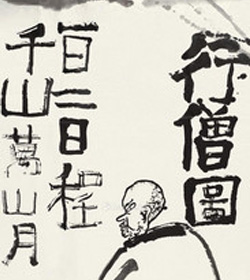 行僧圖
一日二日程
千山萬山月